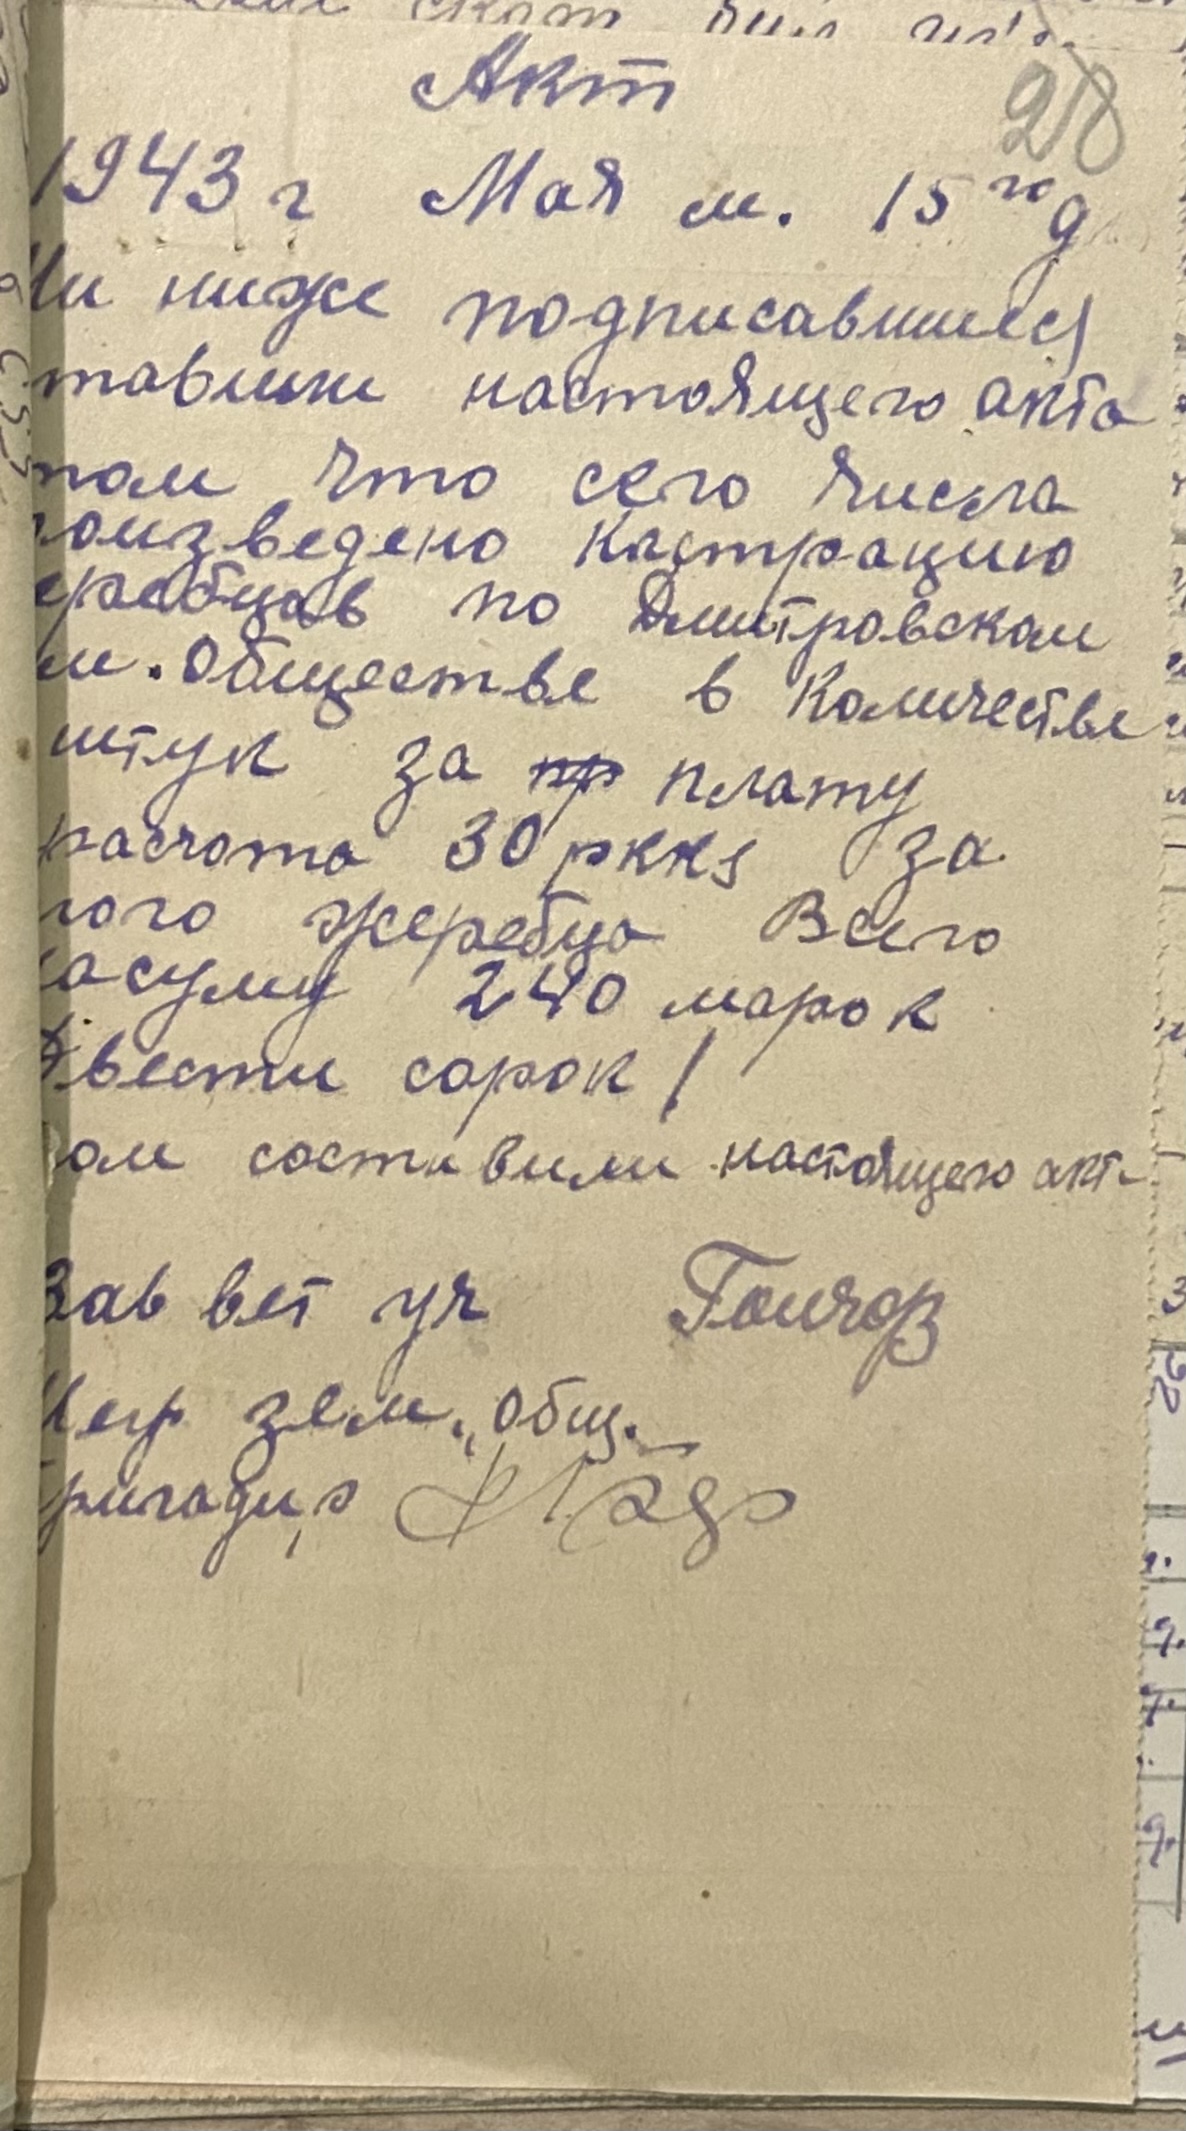 скот был
Акт
28
1943 г Мая м. 15го д
ниже подписавшиеся
тавили настоящего акта
том что сего числа
оизведено кастрацию
еребцов по Дмитровском
м. обществе в количестве
штук за пр плату
расчота 30 ркк за
ного жеребца Всего
на суму 240 марок
Двести сорок /
ом составили настоящего акт
Зав вет уч Гончар
зем. общ.
Бригадир